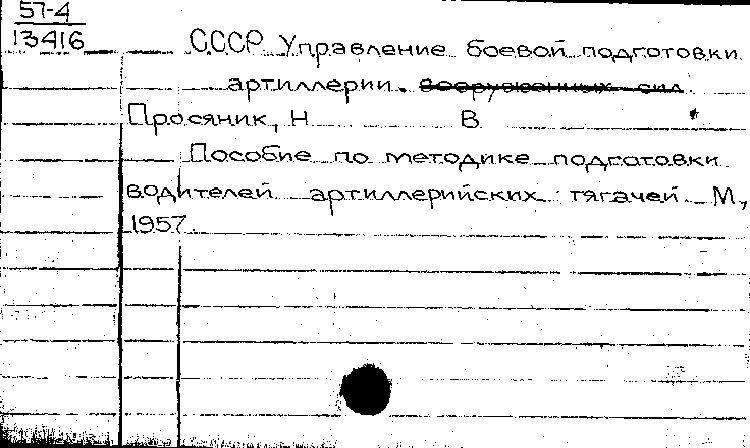 57-4
13416
СССР Управление боевой подготовки
артиллерии. вооруженных сил
Просяник, Н В
Пособие по методике подготовки
водителей артиллерийских тягачей М.,
1957.